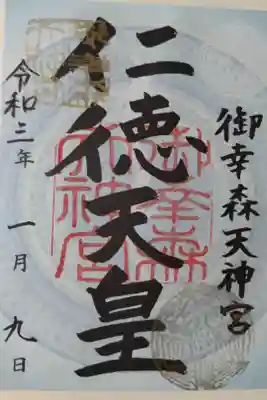 御幸森天神宮
仁徳天皇
御幸森
天神宮
令和三年 一月 九日